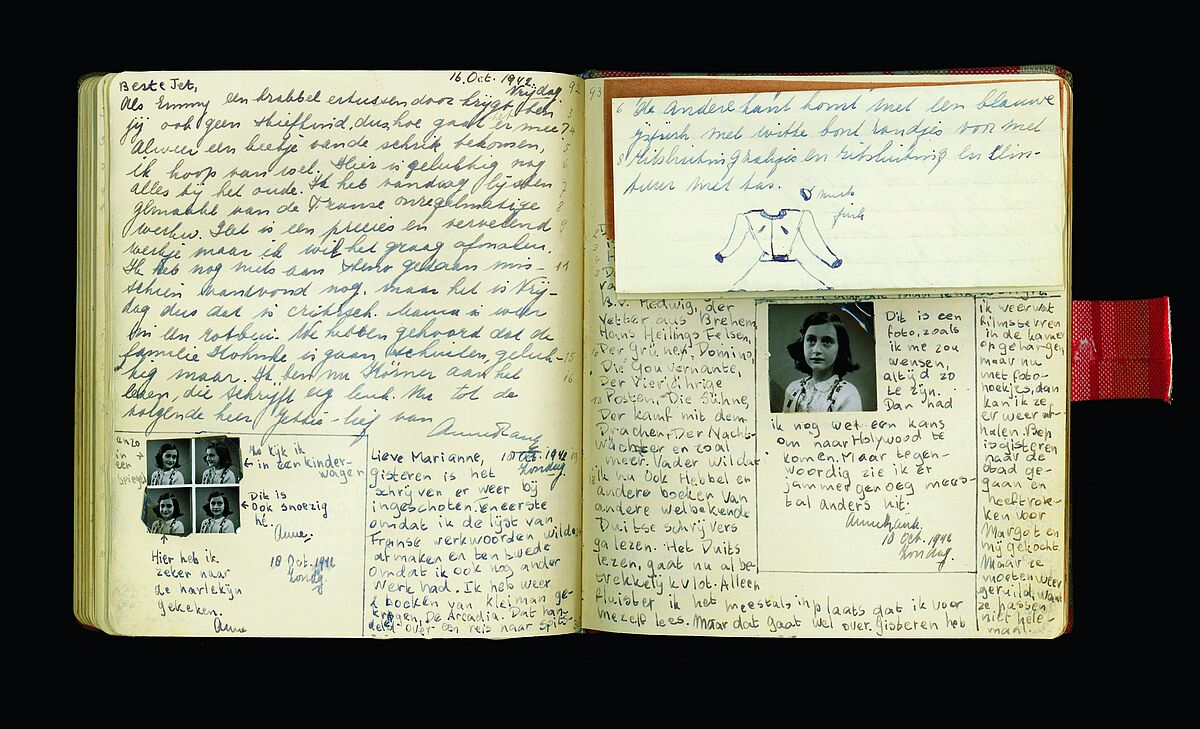 16 Oct. 1942
Vrijdag.
Beste Jet,
Als Emmy een krabbel ertussen door krijgt, ben
jij ook geen stiefkind, dus hoe gaat er mee?
Alweer een beetje van de schrik bekomen,
ik hoop van wel. Hier is gelukkig nog
alles bij het oude. Ik heb vandaag lijsten
gemaakt van de Franse onregelmatige
werkw. Het is een precies en vervelend
werkje maar ik wil het graag afmaken.
Ik heb nog niets aan Steno gedaan mis-
schien vanavond nog, maar het is Vrij-
dag dus dat is critisch. Mama is weer
in een
We hebben gehoord dat de
familie is gaan schuilen, geluk-
kig maar. Ik ben nu Körner aan het
lezen, die schrijft erg leuk. Nu tot de
volgende keer Jettie-lief van
Anne Frank
en zo
in
een
spiegel
Nu kijk ik
in een kinder-
wagen
Dit is
ook snoezig
hè.
Anne.
18 Oct. 1942
Zondag.
Hier heb ik
zeker naar
de harlekijn
gekeken.
Anne
Lieve Marianne,
18 Oct. 1942
Zondag.
gisteren is het
schrijven er weer bij
ingeschoten. Eneerste
omdat ik de lijst van
Franse werkwoorden wilde
afmaken en ten twede
omdat ik ook nog ander
werk had. Ik heb weer
2 boeken van Kleiman ge-
kregen, De Arcadia. Dat han-
deld over een reis naar Spits-
92
93
de andere kant komt met een blauwe
met witte bont randjes voor met
en ritssluiting en
met tas.
B.v. Hedwig, der
Vetter aus Bremen,
Hans Heilings Felsen,
Der Grüne Domino,
Die Gouvernante,
Der Vierjährige
Posten, Die Sühne,
Der Kampf mit dem
Drachen, Der Nacht-
wächter en zoal
meer. Vader wil dat
ik nu ook Hebbel en
andere boeken van
andere welbekende
Duitse schrijvers
ga lezen. Het Duits
lezen, gaat nu al be-
trekkelijk vlot. Alleen
fluister ik het meestal in plaats dat ik voor
mezelf lees. Maar dat gaat wel over. gisteren heb
Dit is een
foto, zoals
ik me zou
wensen,
altijd zo
te zijn.
Dan had
ik nog wel een kans
om naar Holywood te
komen. Maar tegen-
woordig zie ik er
jammer genoeg mees-
tal anders uit.
Anne Frank.
18 Oct. 1942
Zondag.
ik weer wat
filmsterren
in de kamer
opgehangen
maar nu
met foto-
hoekjes, dan
kan ik ze
er weer af-
halen. Bep
is gisteren
naar de
stad ge-
gaan en
heeft rok-
ken voor
Margot en
mij gekocht.
Maar ze
moeten weer
geruild, want
ze passen
niet hele-
maal.